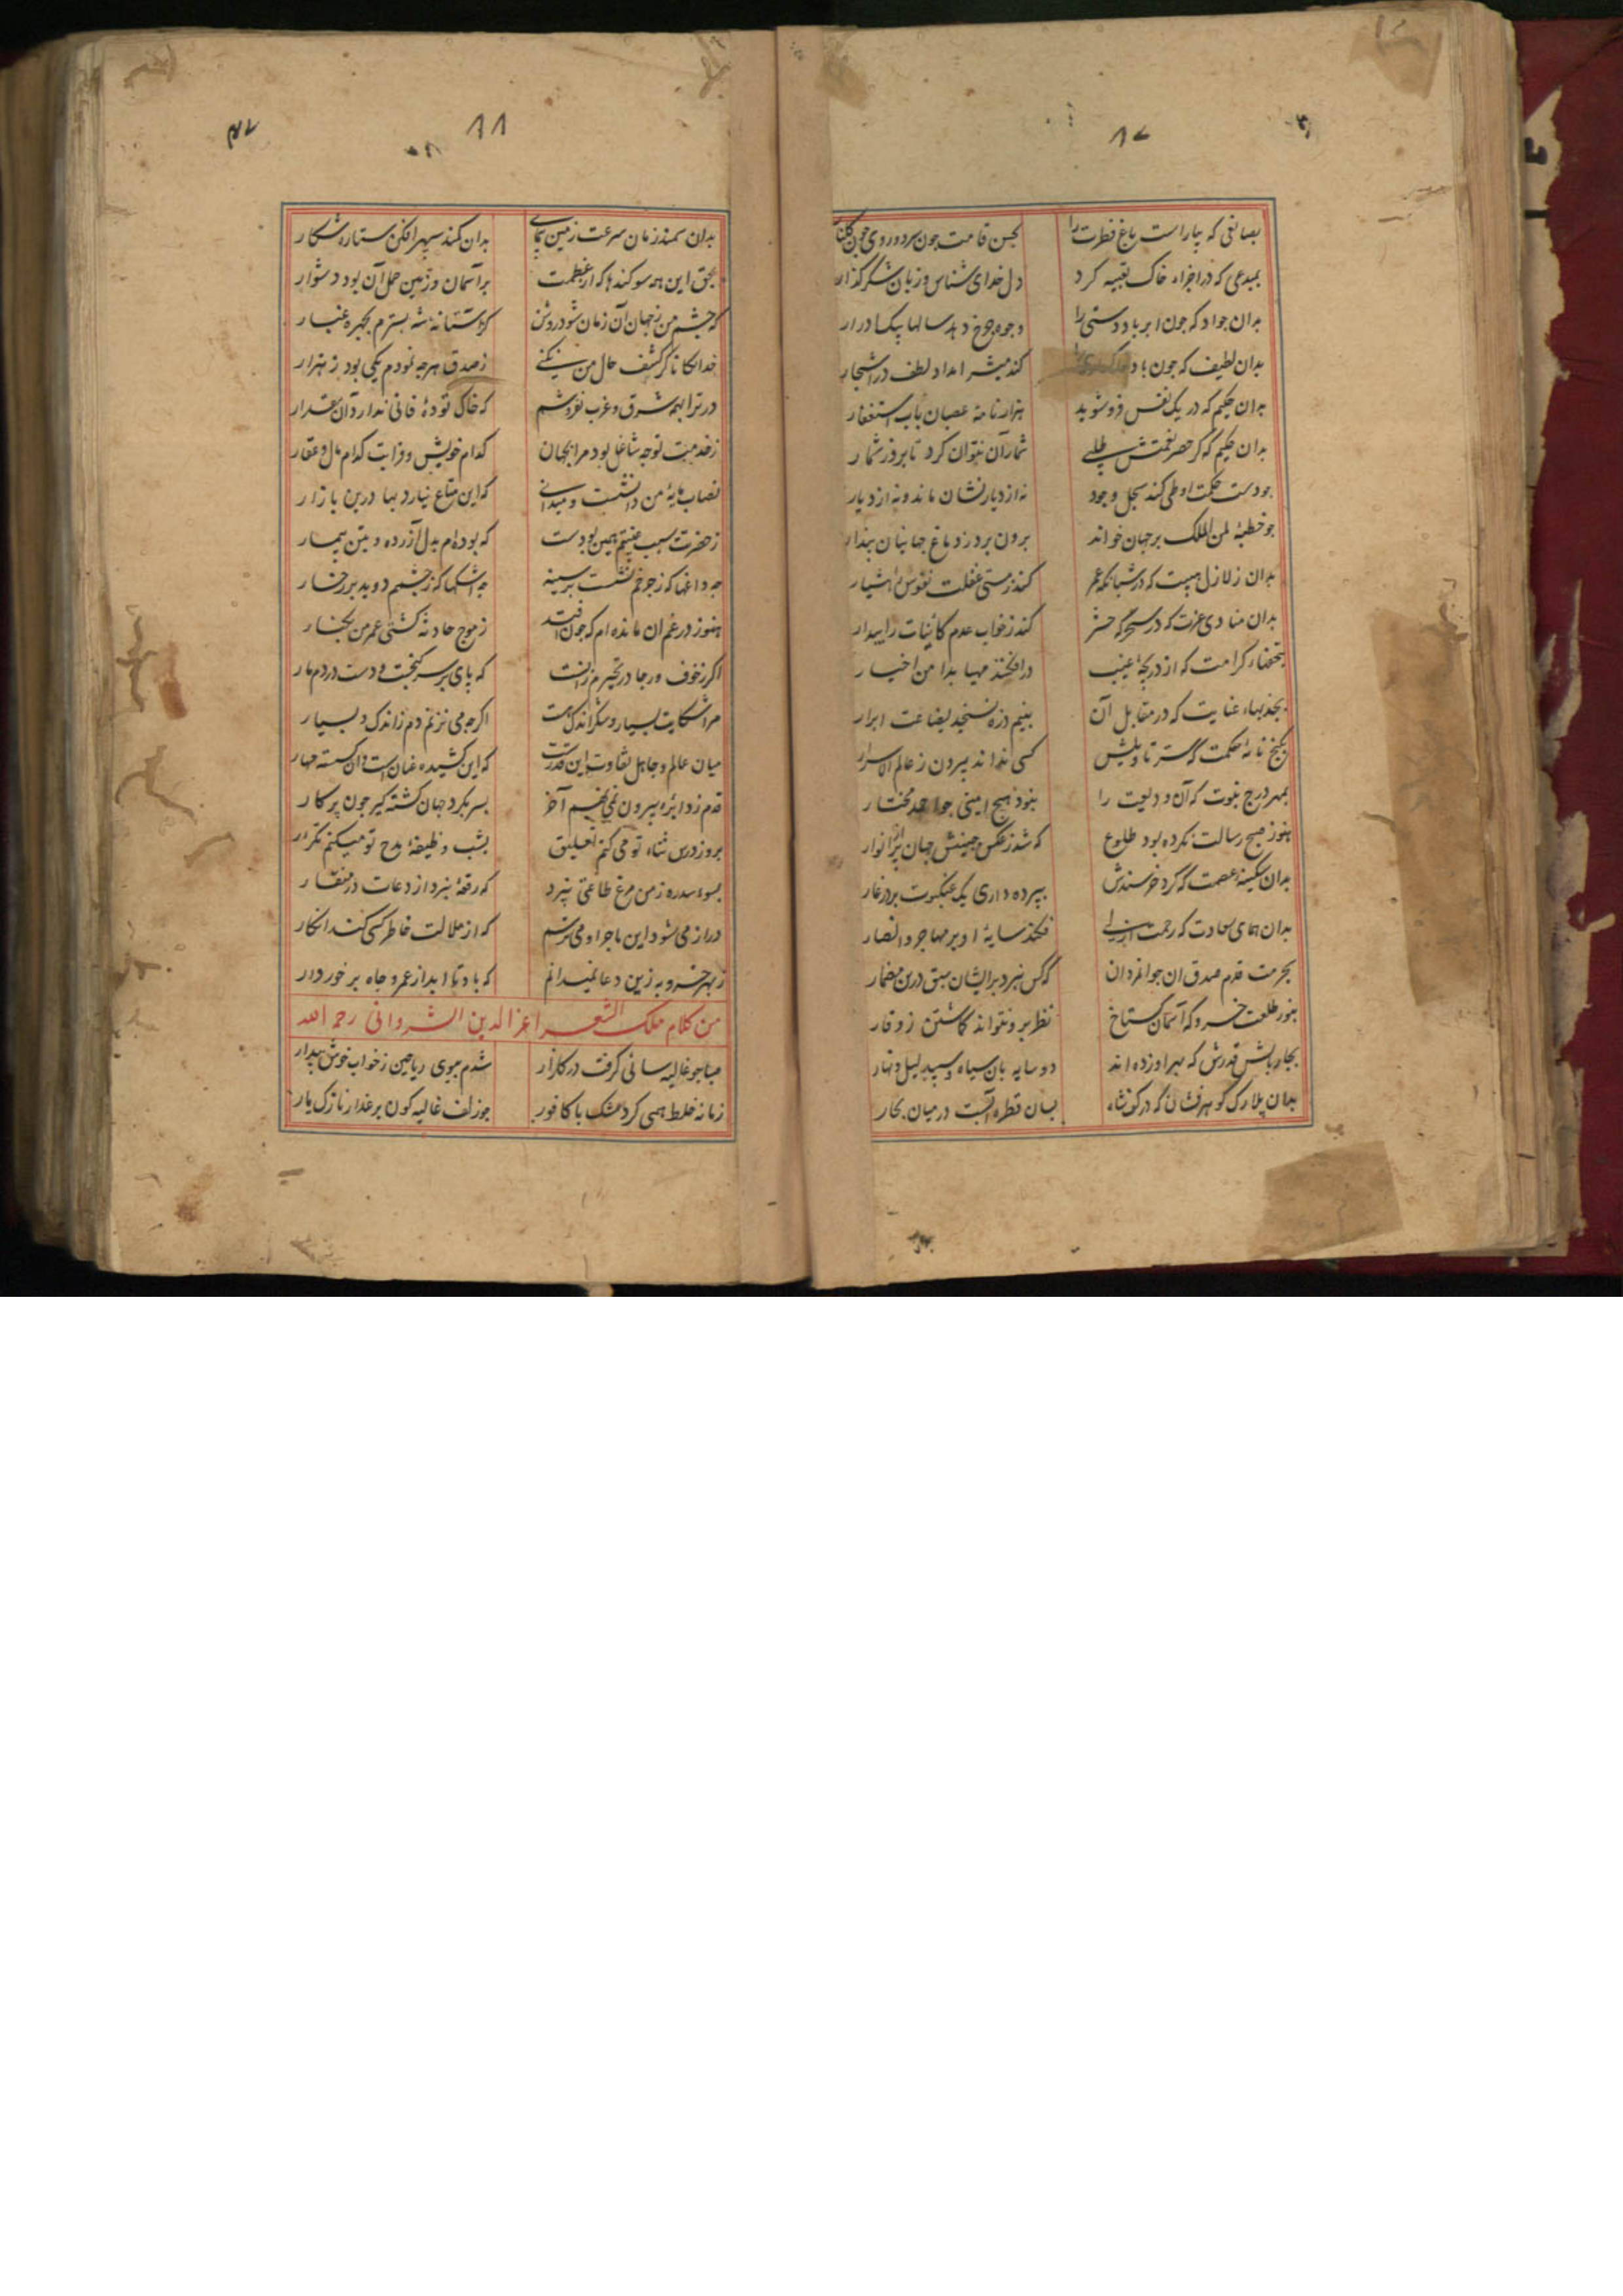 ۸۷
بصانعی که بیاراست باغ فطرت را
بحسن قامت چون سرو و روی چون
بمبدعی که در اجزاء خاک تعبیه کرد
دل خدای شناس و زبان شکر گذار
بدان جواد که چون ابر باد دستی را
وجوه چرخ دهد سالها
بدان لطیف که چون
کند امداد لطف در اشجار
بدان حکیم که در یک نفس فرو شوید
هزار نامهٔ عصیان بآب استغفار
بدان حکیم که گر حصر نعمتش طلبی
شمار آن نتوان کرد تا بروز شمار
چو دست حکمت او طی کند سجل وجود
نه از دیار نشان ماند و نه از دیار
چو خطبهٔ لمن الملک بر جهان خواند
برون برد ز دماغ جهانیان پندار
بدان زلازل هیبت که در
کند ز مستی غفلت نفوس را هشیار
بدان منادی عزت که در سحرگه حشر
کند ز خواب عدم کائنات را بیدار
بتحفهاء کرامت که از دریچهٔ غیب
در افکنند
بجذبهاء عنایت که در مقابل آن
بنیم ذره نسنجد بضاعت ابرار
بگنج نامهٔ حکمت که سر تاویلش
کسی نداند بیرون ز عالم الاسرار
بمهر درج نبوت که آن ودیعت را
نبود هیچ امینی جو احمد مختار
هنوز صبح رسالت نکرده بود طلوع
که شد ز عکس جبینش جهان پر از انوار
بدان سکینهٔ عصمت که گرد خرسندش
بپرده داری یک عنکبوت بر در غار
بدان همای سعادت که رحمت ازلی
فکند سایهٔ او بر مهاجر و انصار
بحرمت قدم صدق ان جوانمردان
که کس نبرد بر ایشان سبق درین مضمار
بنور طلعت خسرو که آسمان گستاخ
نظر برو نتواند کماشتن ز وقار
بچار بالش قدرش که بهر او زده اند
دو سایه بان سیاه و سپید لیل و نهار
بدان بلارک گوهر فشان که در کف شاه
بسان قطره آبست در میان بحار
۸۸
بدان سمند زمان سرعت زمین پیمای
بدان کمند سپهر افکن ستاره شکار
بحق این همه سوکندها که از عظمت
بر آسمان و زمین حمل آن بود دشوار
که چشم من ز جهان آن زمان شود روشن
کز آستانهٔ شه بسترم بچهره غبار
خدایکانا گر کشف حال من نکنی
ز صدق هرچه نمودم یکی بود ز هزار
در ترا بهمه شرق و غرب نفروشم
که خاک تودهٔ فانی ندارد آن مقدار
ز خدمتت توجه شاغل بود مرا بجهان
کدام خویش و قرابت کدام مال و عقار
نصاب مایهٔ من دانشست و میدانی
که این متاع نیارد بها درین بازار
ز حضرت سبب غیبتم همین بودست
که بوده ام بدل آزرده و بتن بیمار
چه داغها که ز چرخم نشست بر سینه
چه اشکها که ز چشمم دوید بر رخسار
هنوز در غم آن مانده ام که چون افتد
ز موج حادثه کشتی عمر من بکنار
اگر ز خوف و رجا در تحیرم زانست
که پای بر سر گنجست و دست در دم مار
مرا شکایت بسیار و شکر اندک هست
اگرچه می نزنم دم ز اندک و بسیار
میان عالم و جاهل تفاوت این قدرست
که این کشیده عنان است و آن گسسته مهار
قدم ز دایره بیرون نمی نهم آخر
بسر بگرد جهان گشته گیر چون پرگار
بروز درس ثناء تو می کنم تعلیق
بشب وظیفهٔ مدح تو میکنم تکرار
بسوء سدره ز من مرغ طاعتی نپرد
که رقعهٔ نبرد از دعات در منقار
دراز می شود این ماجرا و می ترسم
که از ملالت خاطر کسی کند انکار
ز بهر خسرو به زین دعا نمیدانم
که باد تا ابد از عمر و جاه برخوردار
من کلام ملک الشعرا عز الدین الشروانی رحمه الله
صبا چو غالیه سائی گرفت در گلزار
شدم ببوی ریاحین ز خواب خوش بیدار
زمانه خلط همی کرد مشک با کافور
چو زلف غالیه گون بر عذار نازک یار